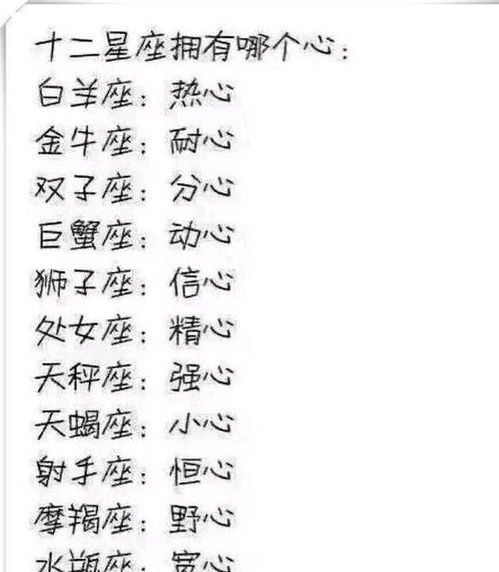 十二星座拥有哪个心：
白羊座：热心
金牛座：耐心
双子座：分心
巨蟹座：动心
狮子座：信心
处女座：精心
天秤座：强心
天蝎座：小心
射手座：恒心
摩羯座：野心
水瓶座：宽心